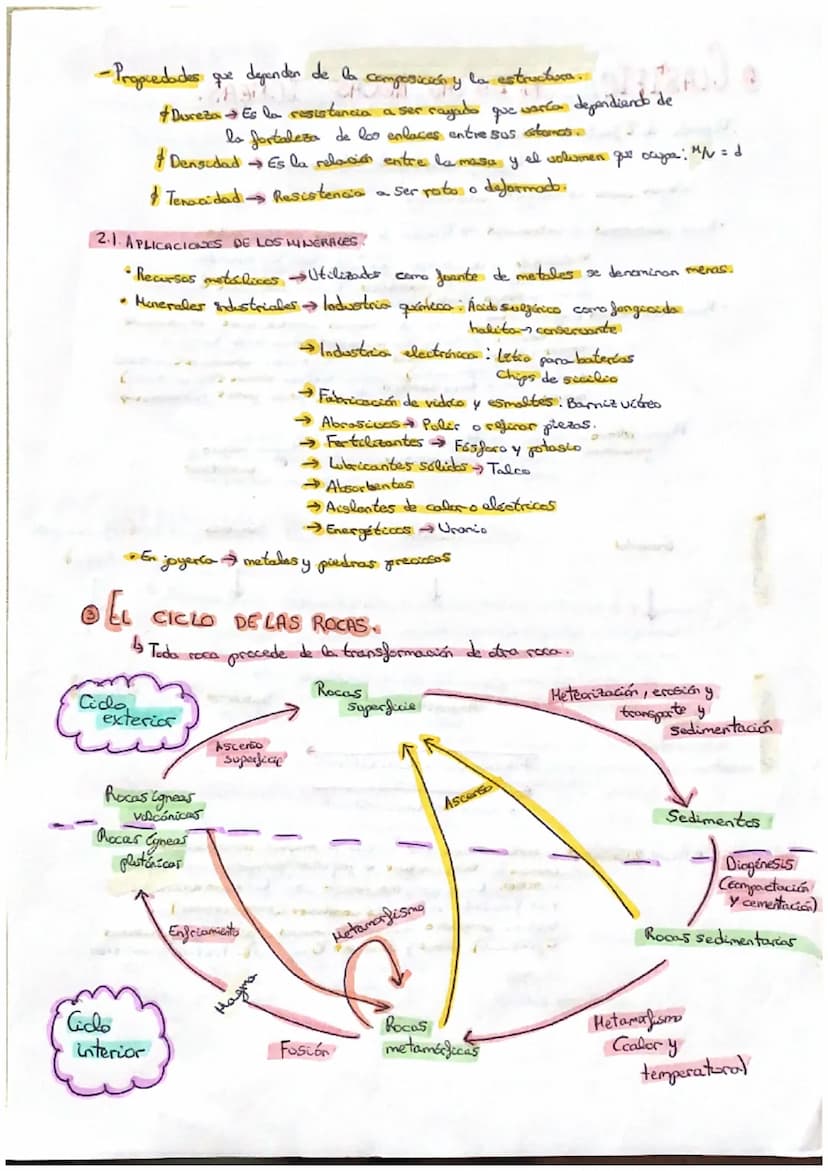 - Propiedades que dependen de la composición y la estructura.
Dureza → Es la resistencia a ser rayado que varía dependiendo de
la fortaleza de los enlaces entre sus átomos.
Densidad → Es la relación entre la masa y el volumen que ocupa: M/V = d
Tenacidad → Resistencia a ser roto o deformado.
2.1. APLICACIONES DE LOS MINERALES.
• Recursos metálicos → Utilizados como fuente de metales se denominan menas.
• Minerales industriales → Industria química: Ácido sulfúrico como
halita → conservante
→ Industria electrónica: Litio para baterías
Chips de silicio
→ Fabricación de vidrio y esmaltes: Barniz vítreo
→ Abrasivos → Pulir o piezas.
→ Fertilizantes → Fósforo y potasio
→ Lubricantes sólidos → Talco
→ Absorbentes
→ Aislantes de calor o eléctricos
→ Energéticos → Uranio
• En joyería → metales y piedras preciosas
③ EL CICLO DE LAS ROCAS.
↳ Toda roca procede de la transformación de otra roca.
Ciclo
exterior
Rocas
superficie
Meteorización, erosión y
transporte y
sedimentación
Ascenso
superficie
Rocas ígneas
volcánicas
Ascenso
Sedimentos
Rocas ígneas
plutónicas
Diagénesis
(compactación
y cementación)
Enfriamiento
Metamorfismo
Rocas sedimentarias
Magma
Ciclo
interior
Fusión
Rocas
metamórficas
Metamorfismo
(calor y
temperatura)